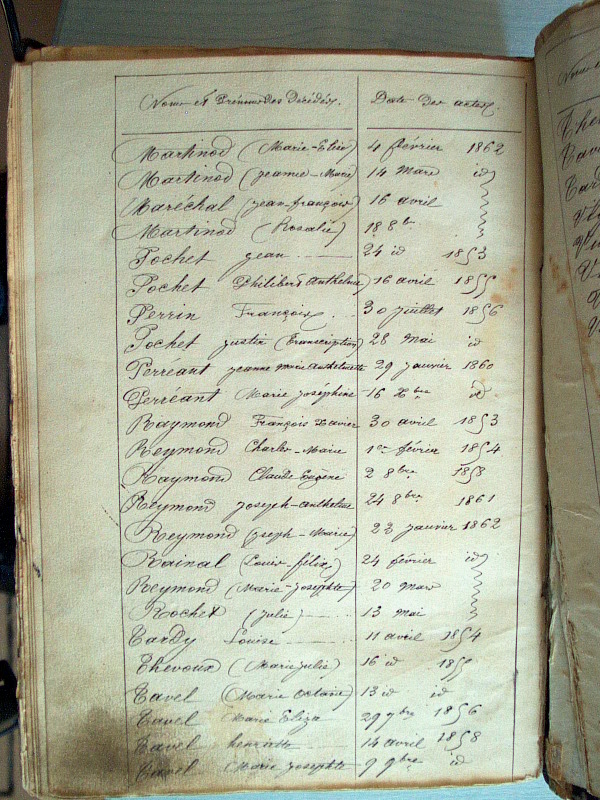 Noms et Prénoms des Décédés. Date des actes
Martinod (Marie-Elise) 4 février 1862
Martinod (jeanne-Marie) 14 Mars id
Maréchal (jean-françois) 16 avril
Martinod (Rosalie) 18 8bre
Pochet jean 24 id 1853
Pochet Philibert Anthelme 16 avril 1855
Perrin François 30 juillet 1856
Pochet justin (Transcription) 28 Mai id
Perréant jeanne Marie Anthelmette 29 janvier 1860
Perréant Marie Joséphine 16 Xbre id
Raymond François Xavier 30 avril 1853
Reymond Charles-Marie 1er février 1854
Raymond Claude Eugène 2 8bre 1858
Reymond joseph-anthelme 24 8bre 1861
Reymond (joseph-Marie) 22 janvier 1862
Rainal (Louis-félix) 24 février id
Reymond (Marie-josephte) 20 Mars
Rochet (julie) 13 Mai
Tardy Louise 11 avril 1854
Thevoux (Marie julie) 16 id 1855
Tavel (Marie 13 id id
Tavel Marie Eliza 29 7bre 1856
Tavel henriette 14 avril 1858
Tavel Marie josephte 9 9bre id